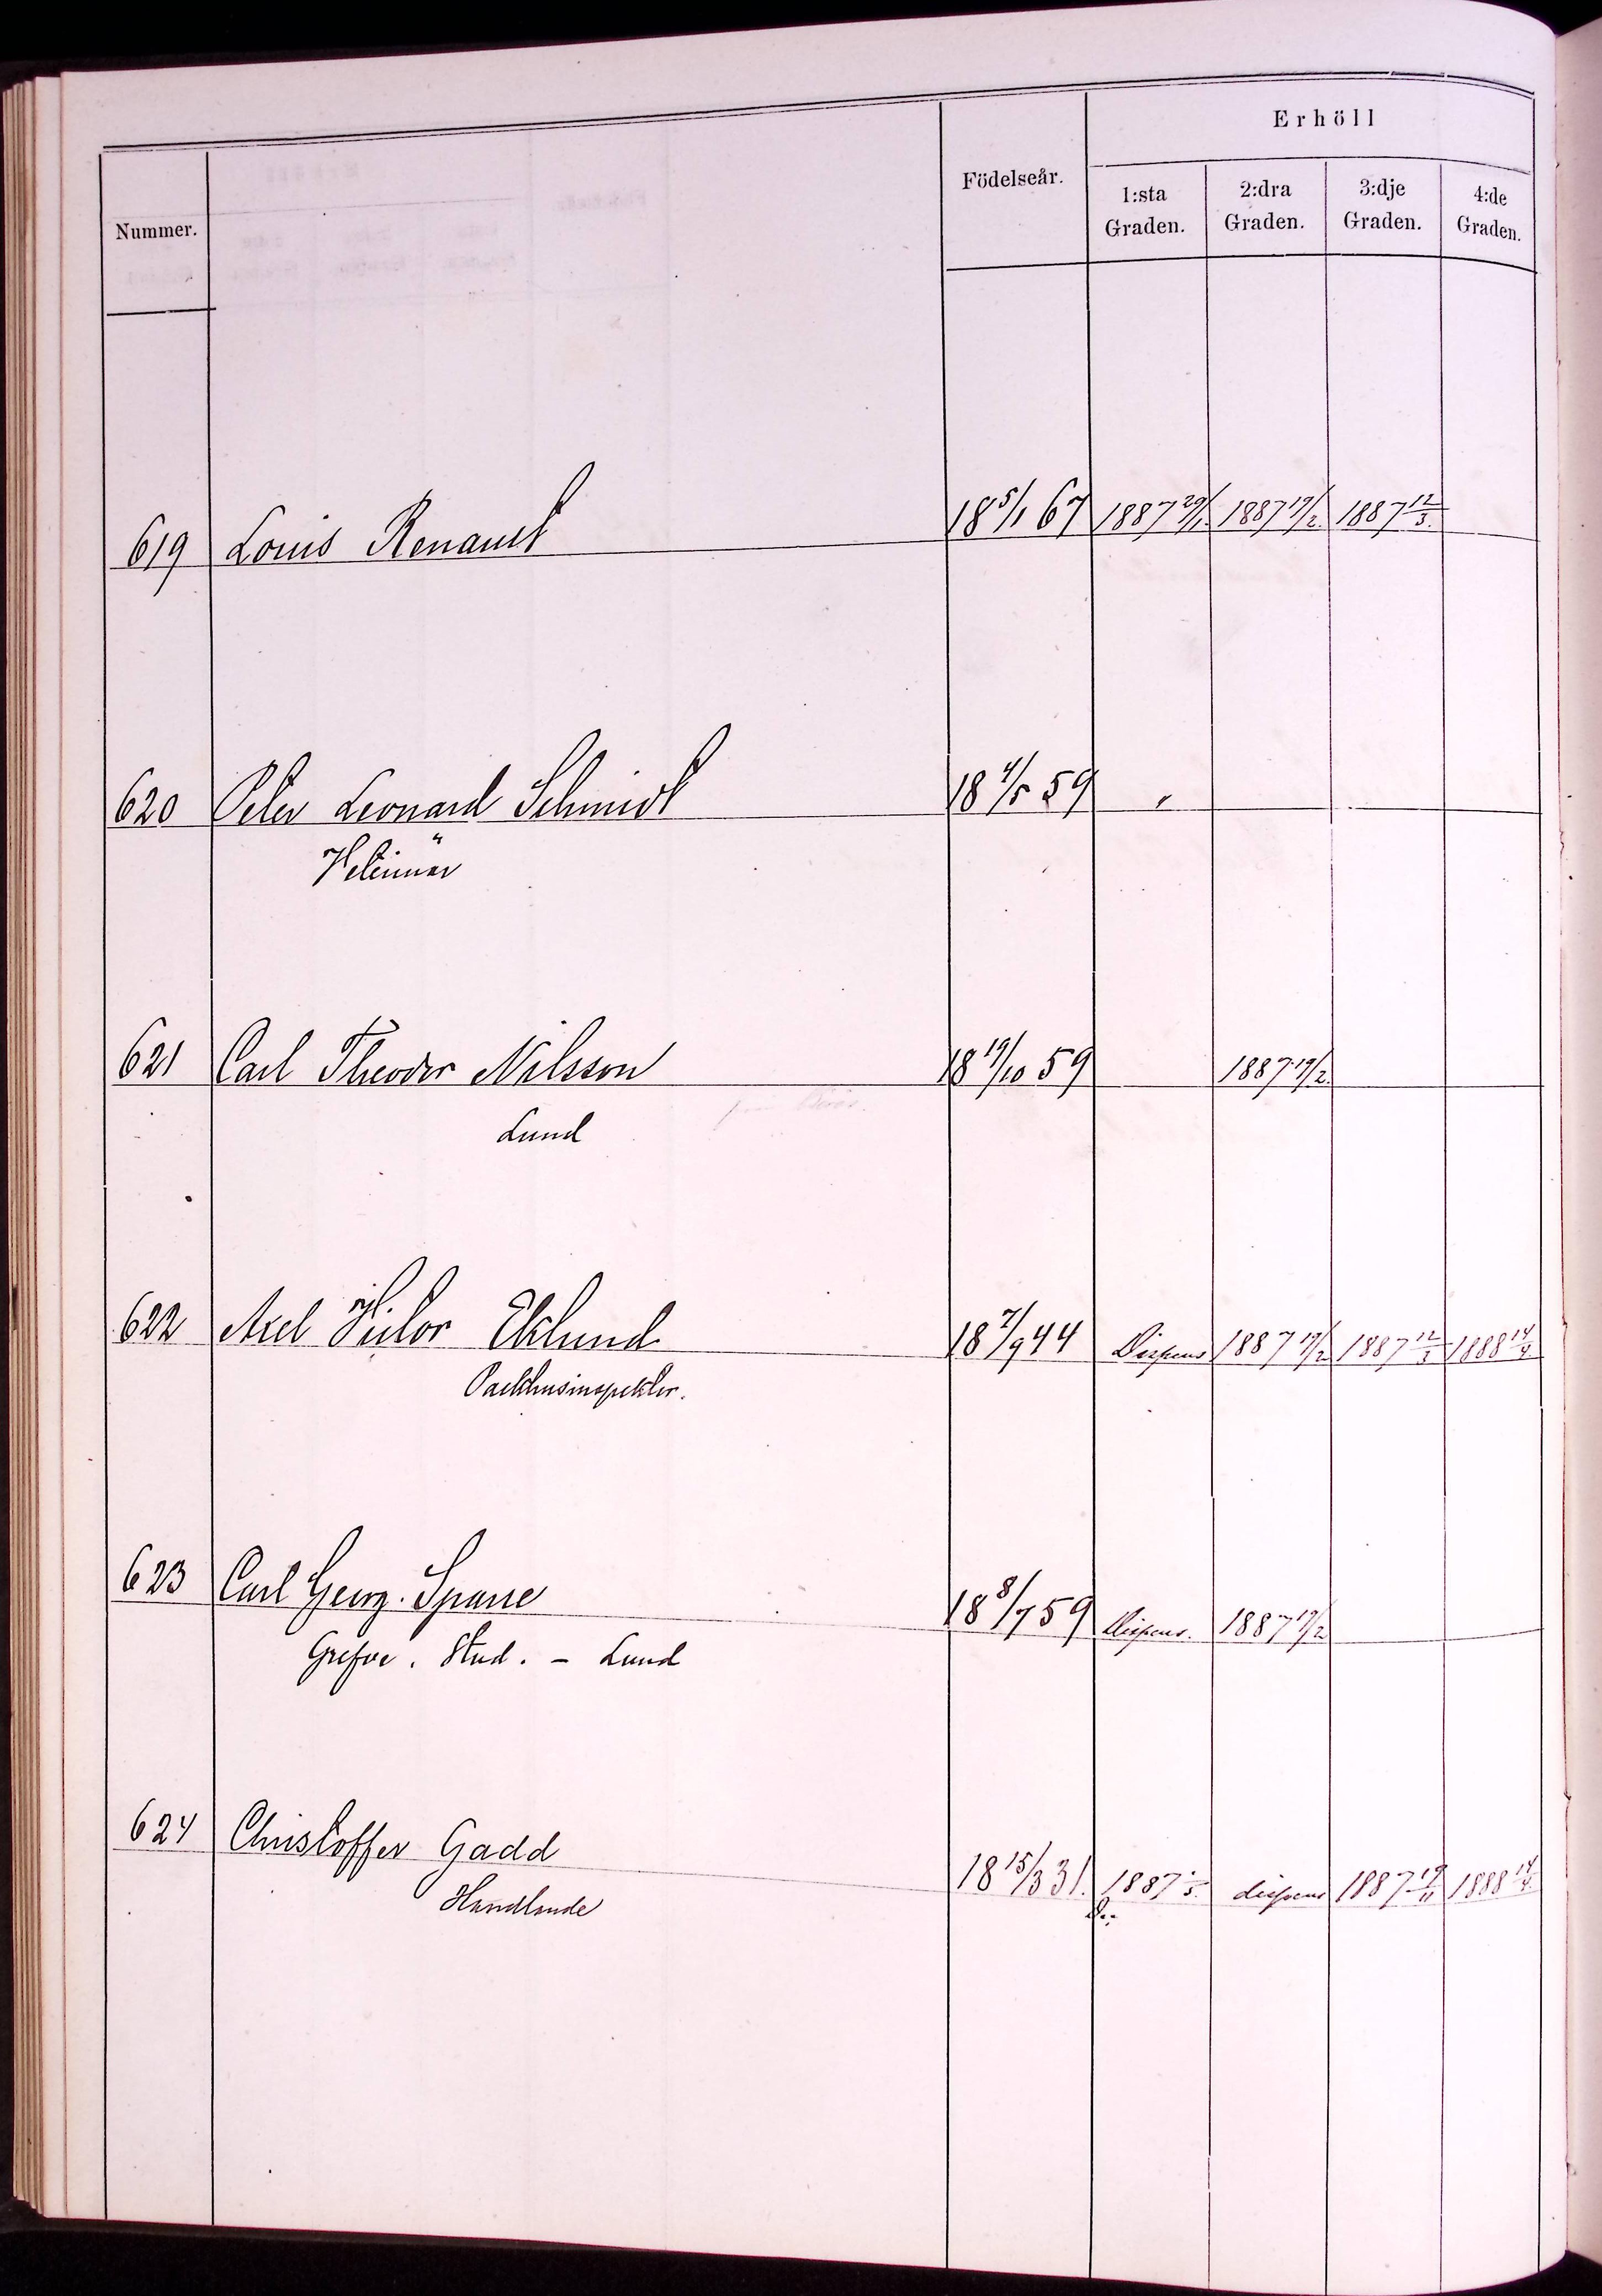 Erhöll
Nummer. Födelseår. 1:sta Graden. 2:dra Graden. 3:dje Graden. 4:de Graden.
619 Louis Renault 18 5/1 67 1887 29/1. 1887 17/2. 1887 12/3.
620 Peter Leonard Schmidt 18 4/5 59 "
Veterinär
621 Carl Theodor Nilsson 18 19/10 59 1887 17/2.
Lund
622 Axel Victor Eklund 18 7/9 44 Dispens 1887 17/2 1887 12/3 1888 14/4.
Packhusinspektor.
623 Carl Georg. Sparre 18 8/7 59 Dispens. 1887 17/2
Grefve. Stud. - Lund
624 Christoffer Gadd 18 15/3 31. 1887 dispens 1887 19/11 1888 14/4.
Handlande